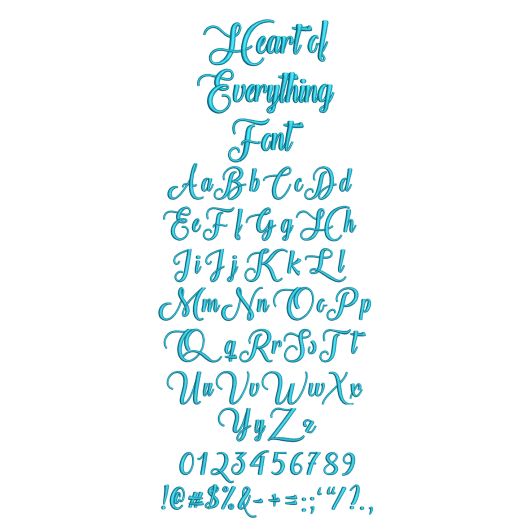 Heart of
Everything
Font
AaBbCcDd
EeFfGgHh
IiJjKkLl
MmNnOoPp
QqRrSsTt
UuVvWwXx
YyZz
0123456789
!@#$%&-+=:;'"/?.,